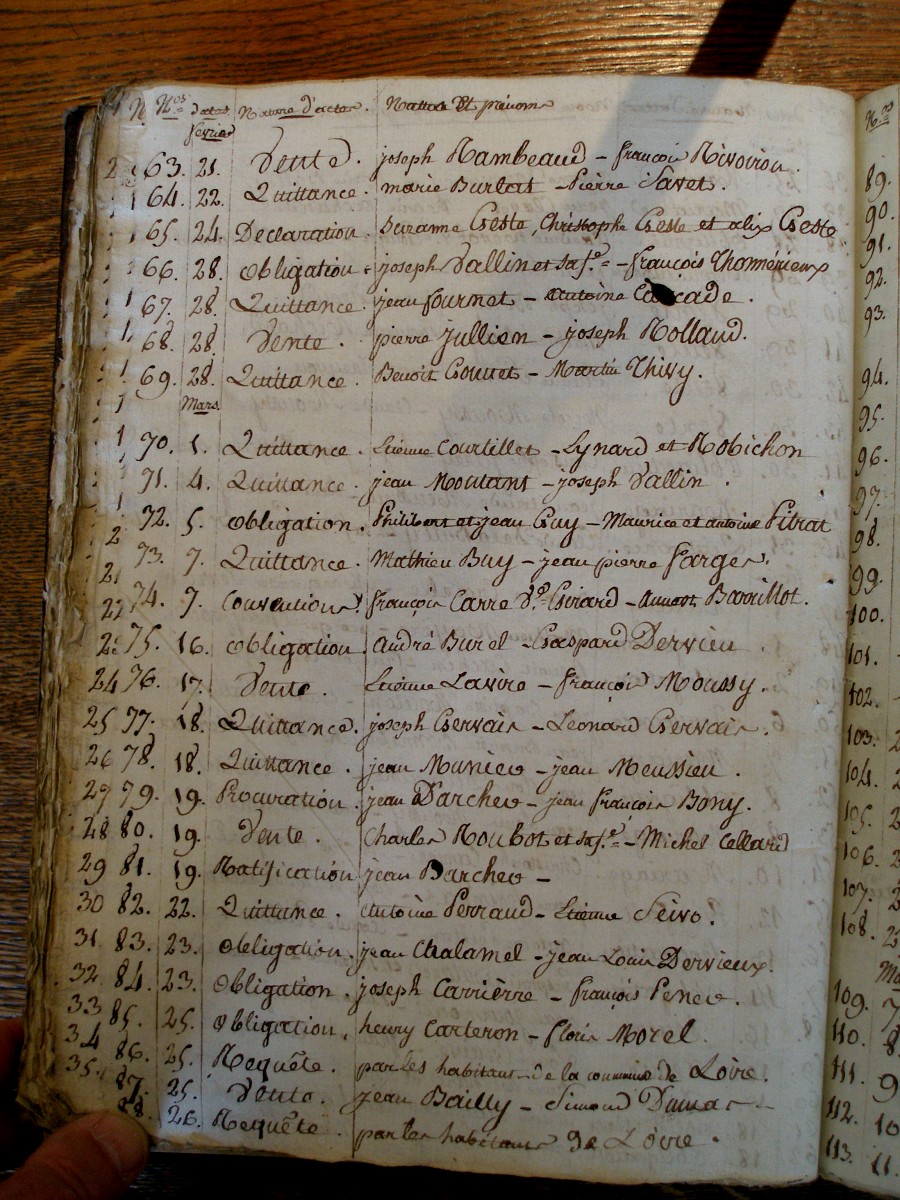 Nos dates Nature d'actes. Noms et prénoms
février
63. 21. Vente. joseph Rambeaud - françois Rivoiron.
64. 22. Quittance. marie Burlat - Pierre Savet.
65. 24. Declaration. Suzanne Geste, Christophe Geste et alix Geste
66. 28. obligation. joseph Vallin et sa fe. - françois Thomérieux
67. 28. Quittance. jean fournet - antoine
68. 28. Vente. pierre Jullien - joseph Rolland.
69. 28. Quittance. Benoît Gonnet - Martin Thivy.
Mars
70. 1. Quittance. Etienne Courtillet - Lynard et Robichon
71. 4. Quittance. jean Moutant - joseph Vallin.
72. 5. obligation. Philibert et jean Guy - Maurice et antoine Pitrat
73. 7. Quittance. Mathieu Buy - jean pierre farges.
74. 7. Convention. françois Carre Ve. Girard - Barrillot.
75. 16. obligation. andré Burel - Gaspard Dervieu
24 76. 17. Vente. Etienne Lavire - françois Moussy.
25 77. 18. Quittance. joseph Gervais - Léonard Gervais.
26 78. 18. Quittance. jean Munier - jean Meussieu.
27 79. 19. Procuration. jean Darcher - jean françois Bony.
28 80. 19. Vente. Charles Roubot et sa fe. - Michel Cellard
29 81. 19. Ratification jean Barcher -
30 82. 22. Quittance. antoine Perraud - Etienne Seivo.
31. 83. 23. obligation. jean Chalamel - jean Louis Dervieux.
32. 84. 23. obligation. joseph Carrièrre - françois Pener.
33 85. 25. obligation. henry Carteron - floris Morel.
34 86. 25. Requête. par les habitants de la commune de Loire.
35. 87. 25. Vente. jean Bailly - Simond Dumas -
88. 26. Requête. par les habitans de Loire.
Nos
89.
90.
91.
92.
93.
94.
95.
96.
97.
98.
99.
100.
101.
102.
103.
104.
105.
106.
107.
108.
109. 7
110. 8
111. 9
112. 10
113. 11.